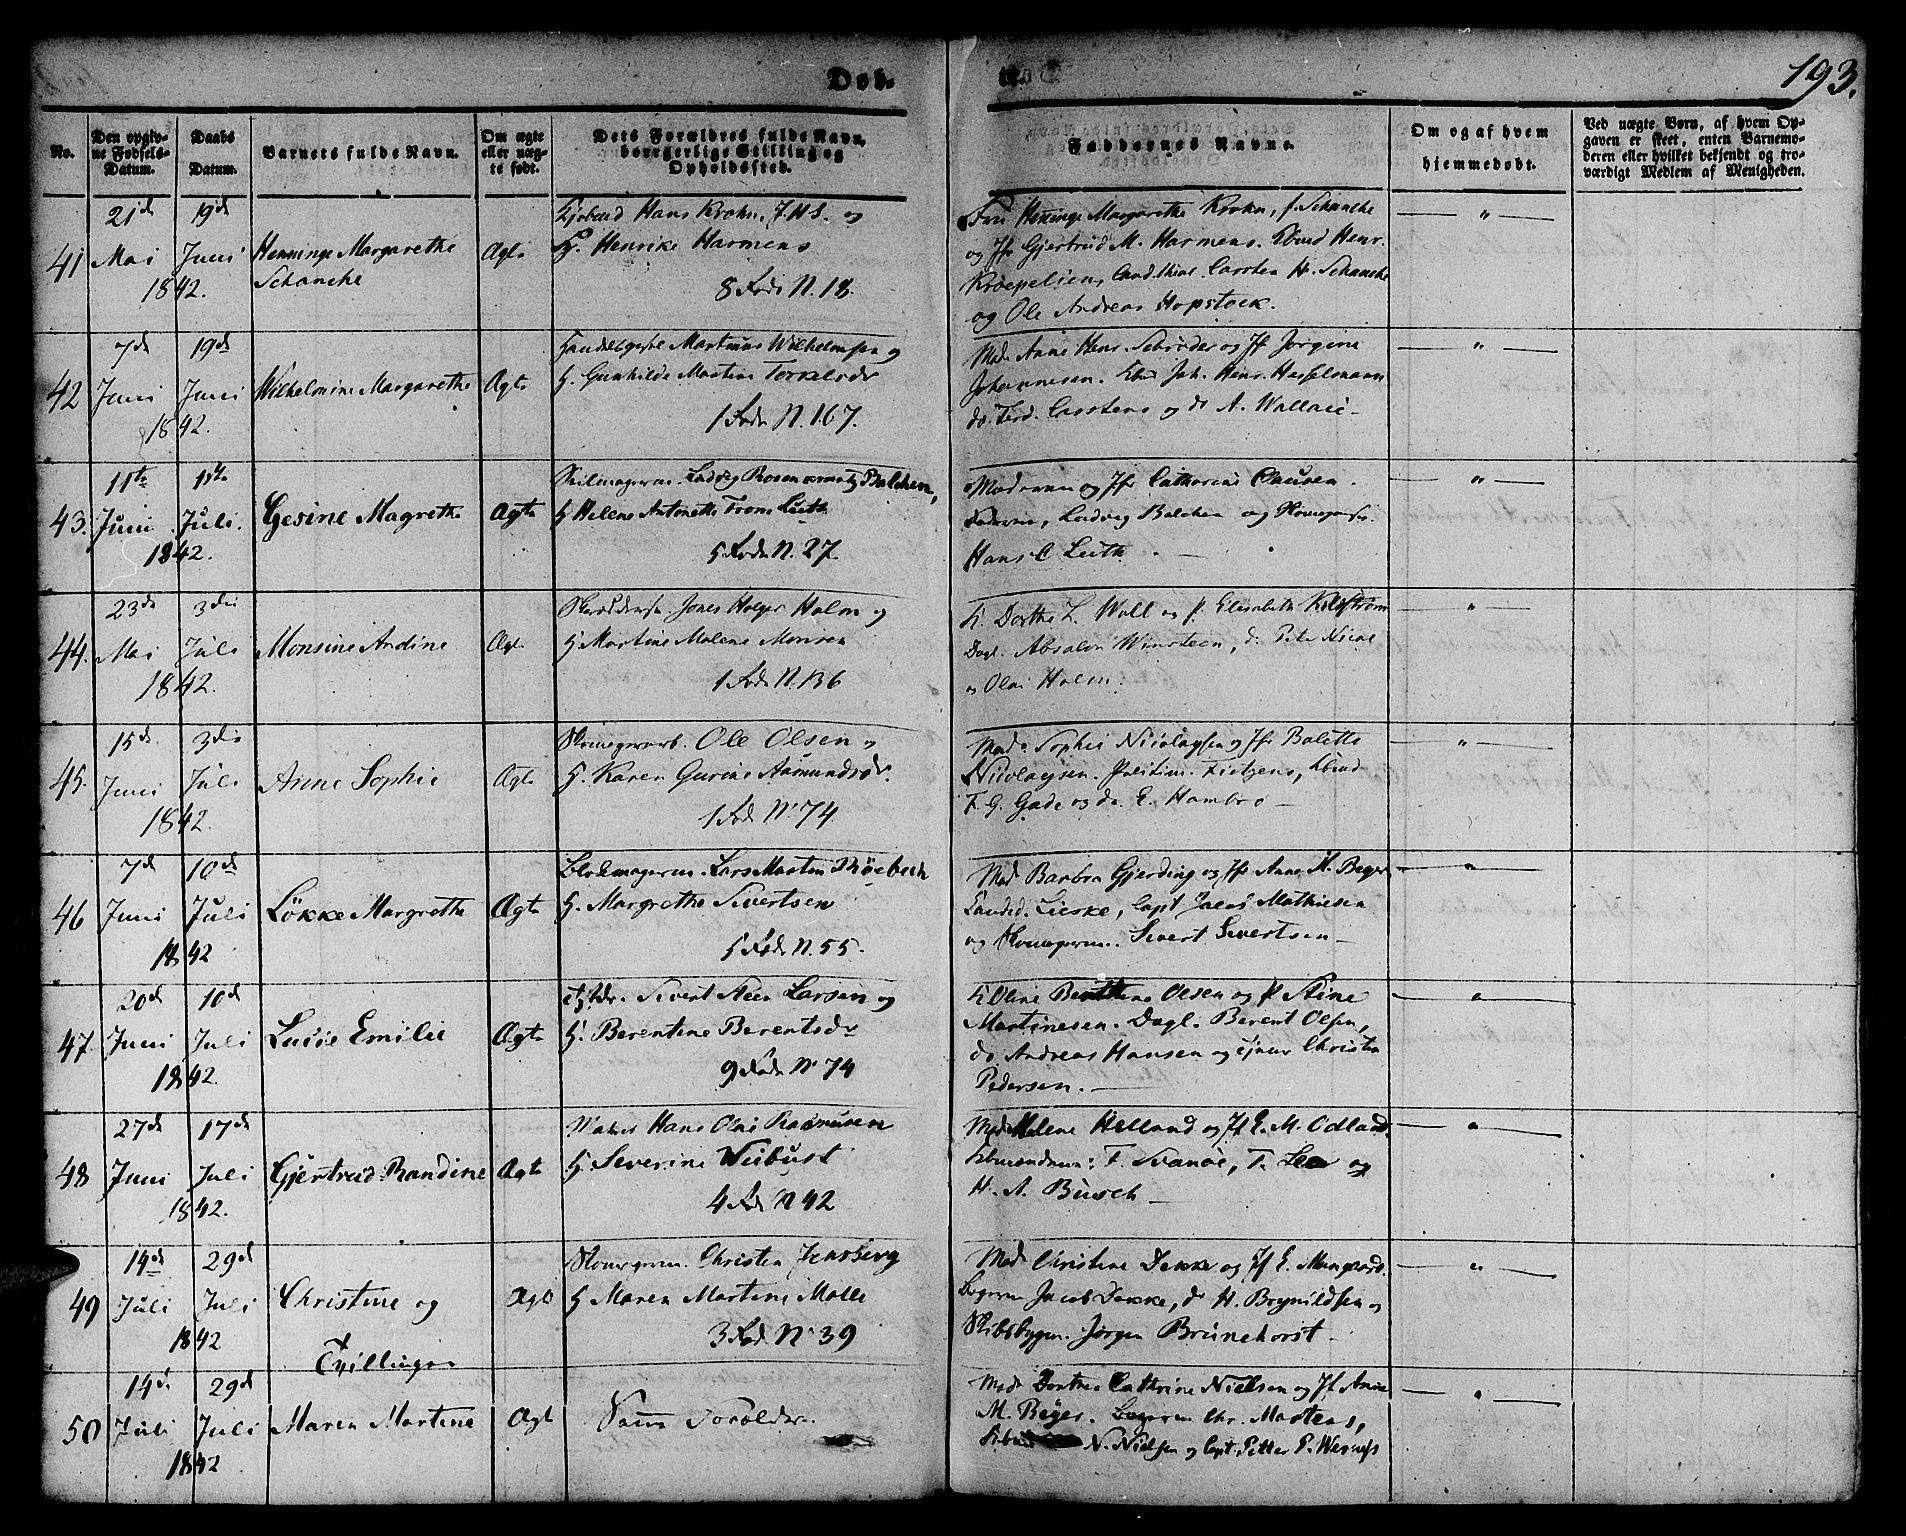 Døb.
193.
No.
Den opgiv-
ne Fødsels-
Datum.
Daabs
Datum.
Barnets fulde Navn.
Om ægte
eller uæg-
te født.
Dets Forældres fulde Navn,
borgerlige Stilling og
Opholdssted.
Faddernes Navne.
Om og af hvem
hjemmedøbt.
Ved uægte Børn, af hvem Op-
gaven er skeet, enten Barnemo-
deren eller hvilket bekjendt og tro-
værdigt Medlem af Menigheden.
41
21de
Mai
19de
Juni
1842.
Henninge Margarethe
Schanche
Ægte
Hans Krohn, og
H. Henrike Harmens
8 Rode N. 18.
Fru Henninge Margarethe Krohn, f. Schanche
og Jfr Gjertrud M. Harmens. Henr.
Krøepelien, Carsten H. Schancke
og Ole Andreas Hopstock.
42
7de
Juni
19de
Juni
1842.
Wilhelmine Margarethe
Ægte
Martinus Wilhelmsen og
H. Gunhilde Martine Torkelsdr
1 Rode N. 167.
Mad. Anne Henr. Schrøder og Jf Jørgine
Johannesen. Joh. Henr. Hasselmann
do. Ferd. Carstens og do A. Wallace
43.
11te
Juni
Juli.
1842.
Gesine Magrethe
Ægte
Ludvig Rosenkrantz Balchen,
H Helene Antonette Trane Leith
5 Rode N. 27.
Moderen og Jfr Catharine Clausen.
Faderen, Ludvig Balchen og
Hans C Leith.
44.
23de
Mai
3die
Juli
1842.
Monsine Andine
Ægte
Jonas Holger Holm og
H Martine Malene Monsen
1 Rode N. 136
K. Dorthe L. Wall og P. Elisabeth
Dagl. Absalon Winsteen, do Peter
og Olai Holm.
45.
15de
Juni
3die
Juli
1842.
Anne Sophie
Ægte
Ole Olsen og
H. Karen Gurine Aamundsdr.
1 Rode No 74
Mad. Sophie Nicolaysen og Jfr Bolette
Nicolaysen.
F. G. Gade og do. E. Hambro
46
7de
Juni
10de
Juli
1842
Løkke Margrethe
Ægte
Blokmagerm. Lars Morten
H. Margrethe Sivertsen
5 Rode N. 55.
Mad Barbra Gjerding og Jfr Anne M. Beyer
Lieske, Capt Jacob Mathiesen
og Skomagerm. Sivert Sivertsen
47.
20de
Juni
10de
Juli
1842.
Lucie Emilie
Ægte
Sivert Steen Larsen og
H. Berentine Berentsdr
9 Rode No 74
K Oline Olsen og P Stine
Martinesen. Dagl. Berent Olsen,
do Andreas Hansen og Tjener Christen
Pedersen.
48
27de
Juni
17de
Juli
1842.
Gjertrud Randine
Ægte
Hans Olai Rasmusen
H. Severine Viibust
4 Rode N 42
Mad Malene Helland og Jf E. M. Odland.
F. Svanøe, T. Lea og
H. A. Büsch
49
14de
Juli
29de
Juli
1842
Christine og
Ægte
Skomagerm. Christen Jensberg
H Maren Martine Molle
3 Rode No 39
Mad Christine Dekke og Jf E. Mungaard.
Bagerm Jacob Dekke, do H. Brynildsen og
Skibsbygm. Jørgen Brunchorst
Tvillinger
50
14de
Juli
29de
Juli
1842
Maren Martine
Ægte
Samme Forældre.
Mad Dorthe Cathrine Nielsen og Jf Anne
M. Beyer. Bagerm Chr. Martens,
N. Nielsen og Capt. Petter P. Wernøs